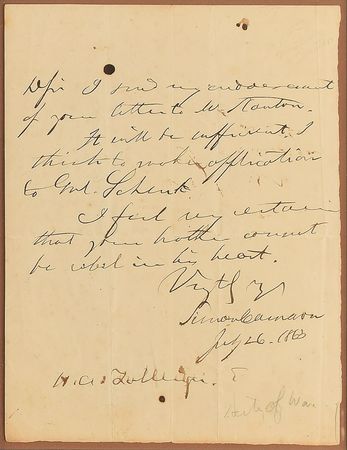 D Sir I send my endorsement
of your letter to Mr Stanton.
It will be sufficient, I
think to make application
to Genl. Schenk.
I feel very certain
that your brother cannot
be rebel in his heart.
Simon Cameron
July 26. 1863
H. A.
of War